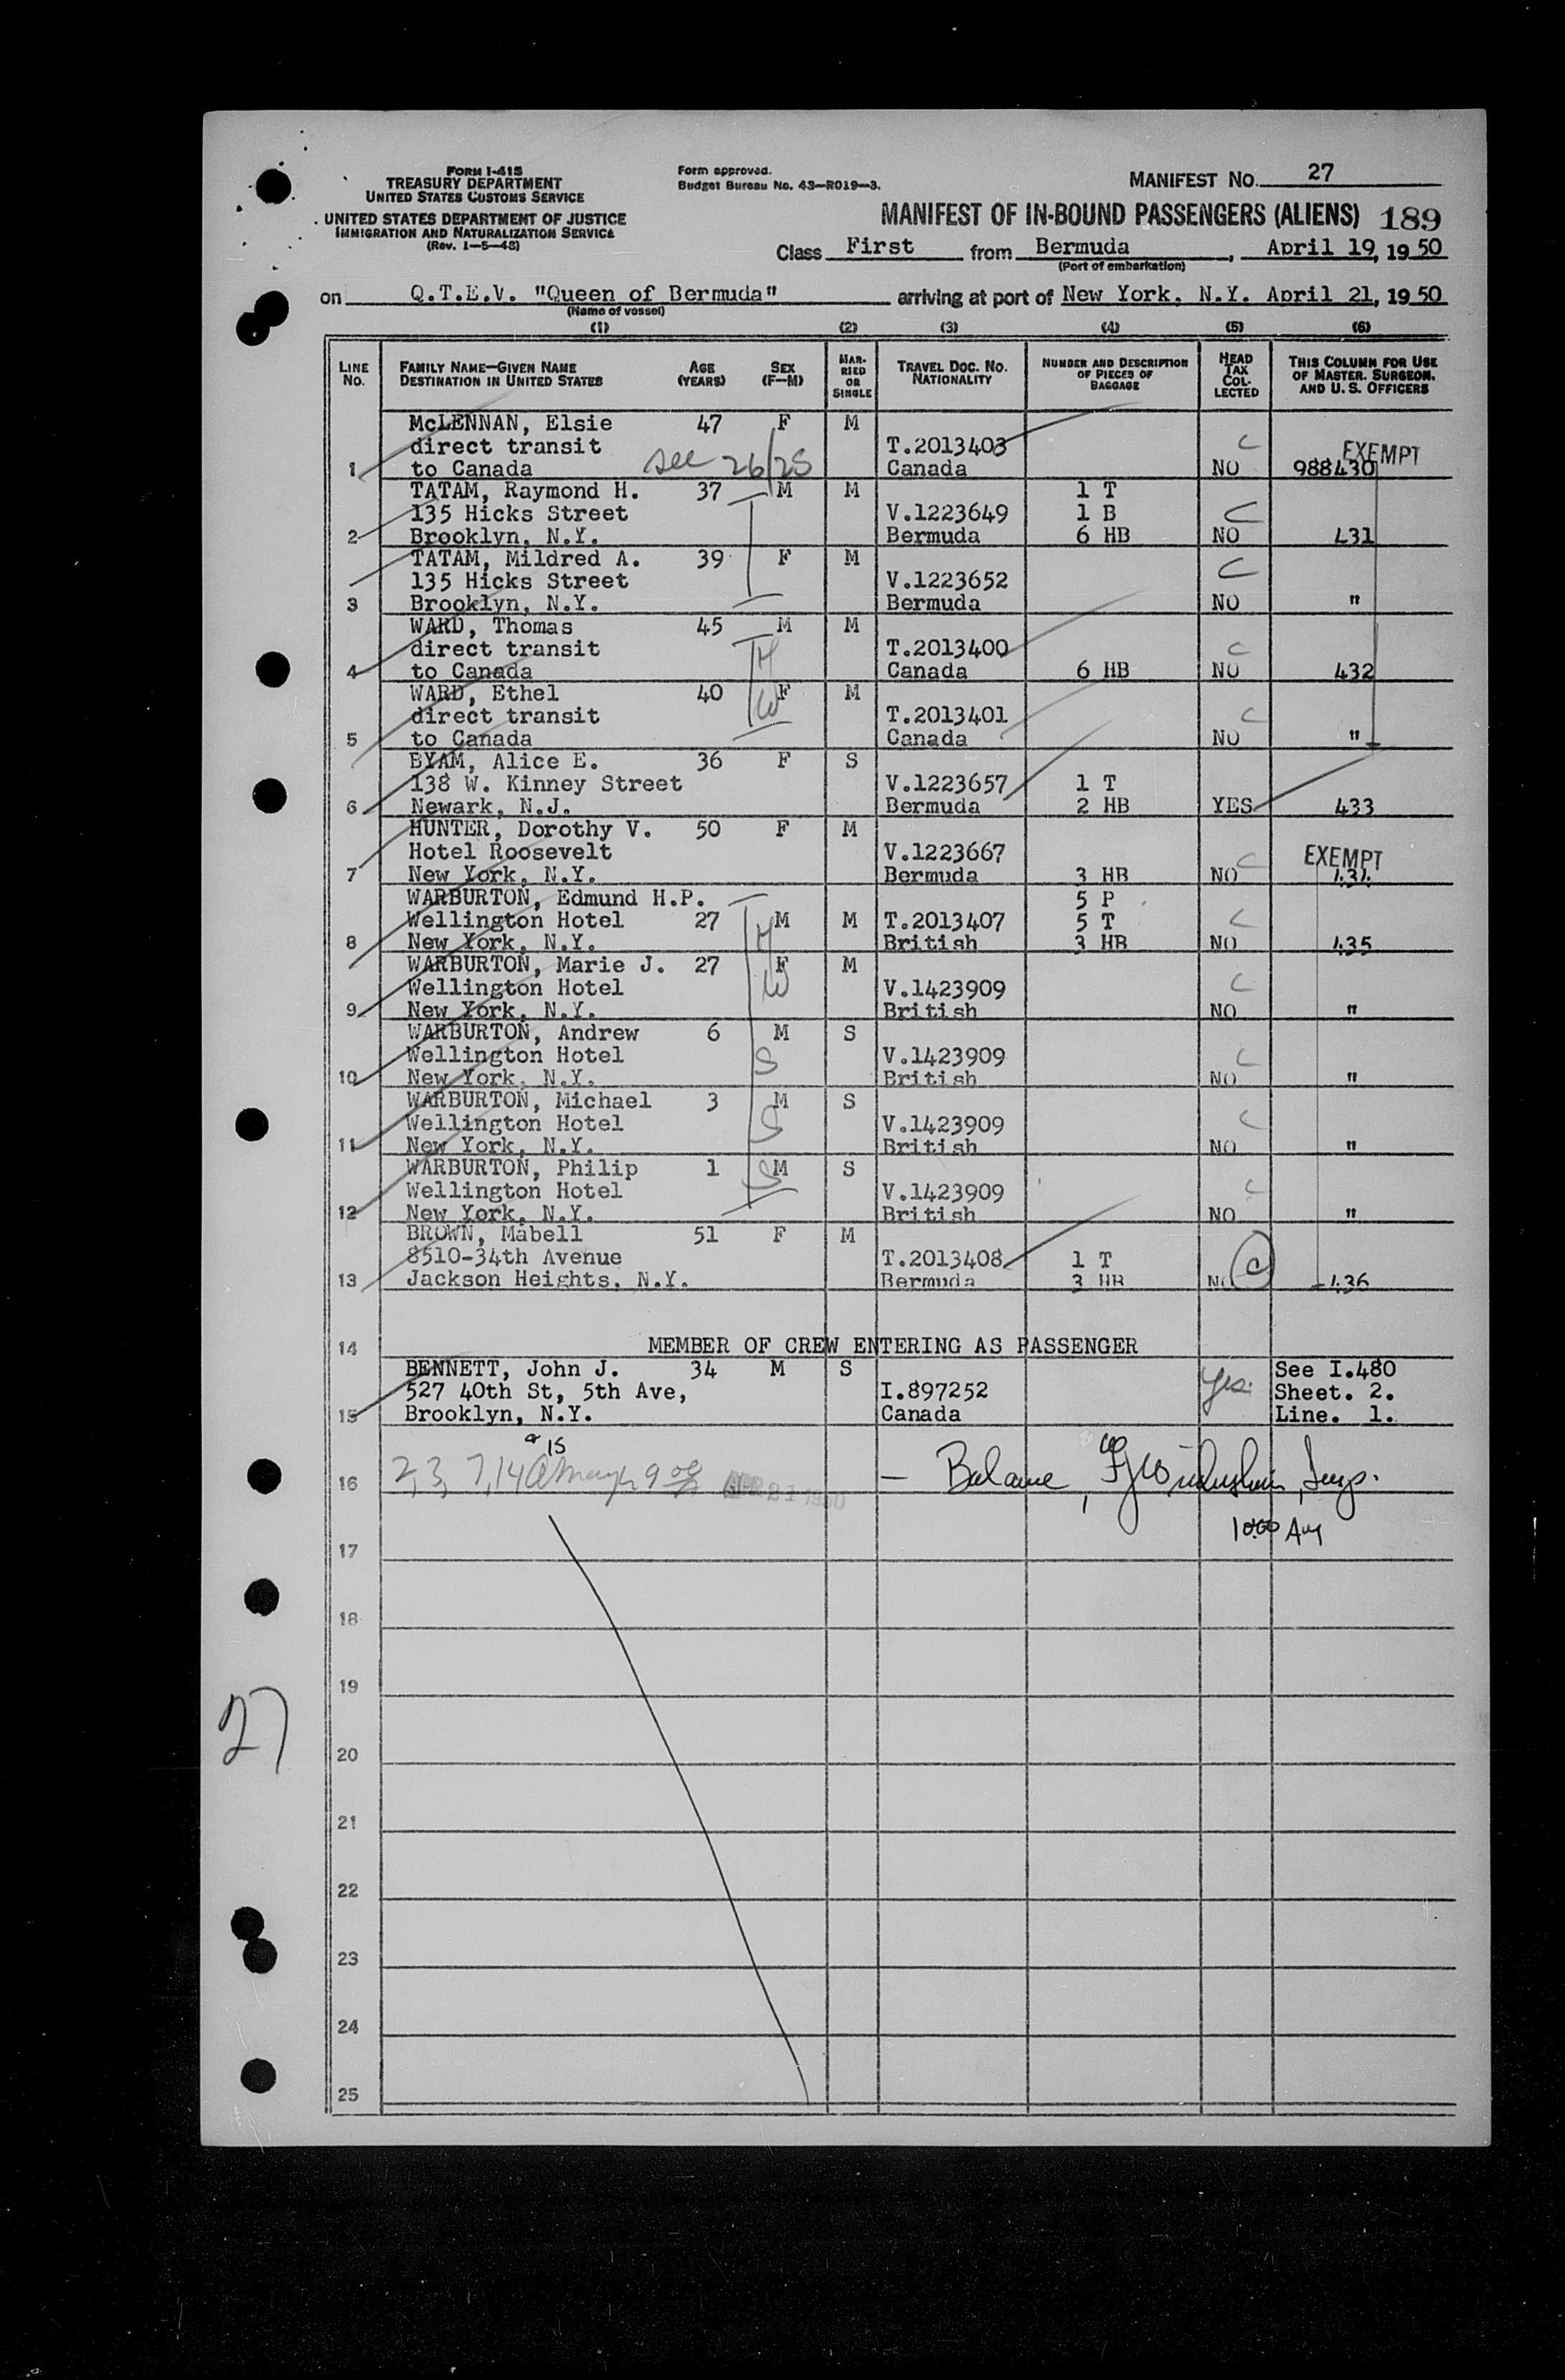 FORM I-415
TREASURY DEPARTMENT
UNITED STATES CUSTOMS SERVICE
UNITED STATES DEPARTMENT OF JUSTICE
IMMIGRATION AND NATURALIZATION SERVICE
(Rev. 1-5-48)
Form approved.
Budget Bureau No. 43-R019-3.
MANIFEST NO. 27
MANIFEST OF IN-BOUND PASSENGERS (ALIENS) 189
Class First from Bermuda, April 19, 1950
(Port of embarkation)
on Q.T.E.V. "Queen of Bermuda" arriving at port of New York, N.Y. April 21, 1950
(Name of vessel)
(1) (2) (3) (4) (5) (6)
LINE No.
FAMILY NAME—GIVEN NAME
DESTINATION IN UNITED STATES
AGE (YEARS)
SEX (F—M)
MARRIED OR SINGLE
TRAVEL DOC. NO.
NATIONALITY
NUMBER AND DESCRIPTION OF PIECES OF BAGGAGE
HEAD TAX COLLECTED
THIS COLUMN FOR USE OF MASTER, SURGEON, AND U. S. OFFICERS
McLENNAN, Elsie 47 F M
direct transit T.2013403 C EXEMPT
1 to Canada see 26/25 Canada NO 988430
TATAM, Raymond H. 37 M M 1 T
135 Hicks Street V.1223649 1 B C
2 Brooklyn, N.Y. Bermuda 6 HB NO 431
TATAM, Mildred A. 39 F M C
135 Hicks Street V.1223652
3 Brooklyn, N.Y. Bermuda NO "
WARD, Thomas 45 M M
direct transit H T.2013400 C
4 to Canada Canada 6 HB NO 432
WARD, Ethel 40 F M
direct transit W T.2013401 C
5 to Canada Canada NO "
BYAM, Alice E. 36 F S
138 W. Kinney Street V.1223657 1 T
6 Newark, N.J. Bermuda 2 HB YES 433
HUNTER, Dorothy V. 50 F M
Hotel Roosevelt V.1223667 C EXEMPT
7 New York, N.Y. Bermuda 3 HB NO 434
WARBURTON, Edmund H.P. 5 P
Wellington Hotel 27 M M T.2013407 5 T C
8 New York, N.Y. H British 3 HB NO 435
WARBURTON, Marie J. 27 F M
Wellington Hotel W V.1423909 C
9 New York, N.Y. British NO "
WARBURTON, Andrew 6 M S
Wellington Hotel S V.1423909 C
10 New York, N.Y. British NO "
WARBURTON, Michael 3 M S
Wellington Hotel S V.1423909 C
11 New York, N.Y. British NO "
WARBURTON, Philip 1 M S
Wellington Hotel S V.1423909 C
12 New York, N.Y. British NO "
BROWN, Mabell 51 F M
8510-34th Avenue T.2013408 1 T C
13 Jackson Heights, N.Y. Bermuda 3 HB NO 436
14 MEMBER OF CREW ENTERING AS PASSENGER
BENNETT, John J. 34 M S See I.480
527 40th St, 5th Ave, I.897252 Yes. Sheet. 2.
15 Brooklyn, N.Y. Canada Line. 1.
15
16 2, 3, 7, 14 APR 21 1950 — Balance, Insp.
17 1000 AM
18
19
27
20
21
22
23
24
25